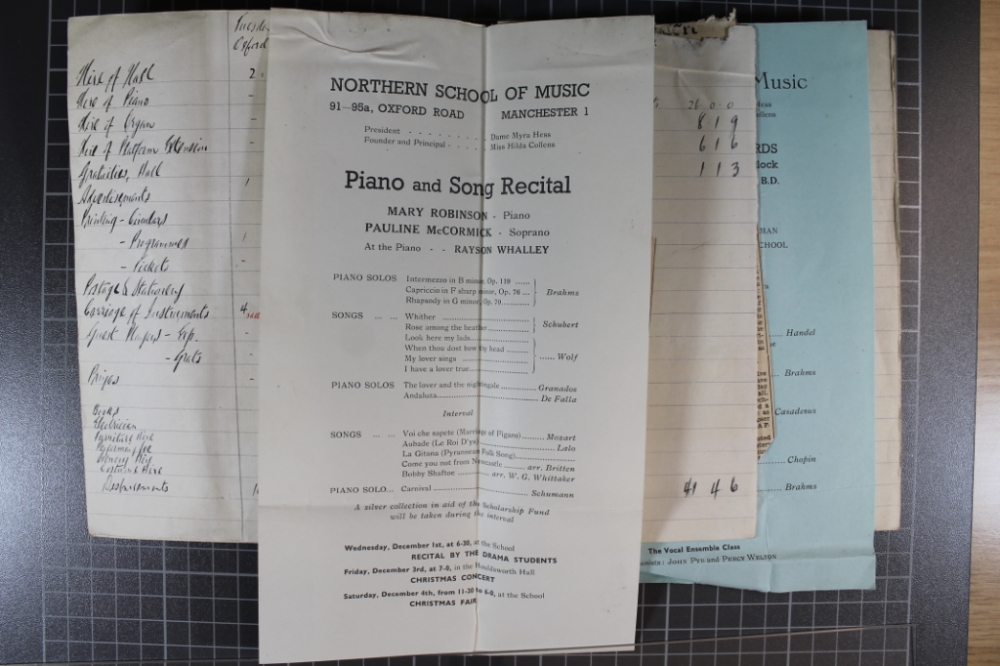 Tuesda
Oxford
Hire of Hall 2
Hire of Piano -
Hire of Organ -
Hire of Platform Extension -
Gratuities, Hall 1
Advertisements
Printing - Circulars
- Programmes 1
- Tickets -
Postage & Stationery
Carriage of Instruments 4
Guest Players - Exp. -
- Grats -
Prizes -
Books
Electrician
Performing Fee
Costume Hire
Refreshments
NORTHERN SCHOOL OF MUSIC
91—95a, OXFORD ROAD MANCHESTER 1
President - - - - - - - - Dame Myra Hess
Founder and Principal - - - - Miss Hilda Collens
Piano and Song Recital
MARY ROBINSON - Piano
PAULINE McCORMICK - Soprano
At the Piano - - RAYSON WHALLEY
PIANO SOLOS Intermezzo in B minor, Op. 119 ......
Capriccio in F sharp minor, Op. 76 ... Brahms
Rhapsody in G minor, Op. 79 ..........
SONGS ... ... Whither ..............................
Rose among the heather .............. Schubert
Look here my lads ....................
When thou dost bow thy head ........
My lover sings ...................... Wolf
I have a lover true ..................
PIANO SOLOS The lover and the nightingale ............ Granados
Andaluza .............................. De Falla
Interval
SONGS ... ... Voi che sapete (Marriage of Figaro) ....... Mozart
Aubade (Le Roi D'ys) ................... Lalo
La Gitana (Pyrannean Folk Song) ........
Come you not from Newcastle ... arr. Britten
Bobby Shaftoe ........ arr. W. G. Whittaker
PIANO SOLO... Carnival .......................... Schumann
A silver collection in aid of the Scholarship Fund
will be taken during the interval
Wednesday, December 1st, at 6-30, at the School
RECITAL BY THE DRAMA STUDENTS
Friday, December 3rd, at 7-0, in the Houldsworth Hall
CHRISTMAS CONCERT
Saturday, December 4th, from 11-30 to 6-0, at the School
CHRISTMAS FAIR
26 0 0
8 1 9
6 1 6
1 1 3
41 4 6
Music
Hess
ollens
RDS
lock
B.D.
MAN
CHOOL
Handel
Brahms
Casadesus
Chopin
Brahms
The Vocal Ensemble Class
anists : JOHN PYE and PERCY WELTON